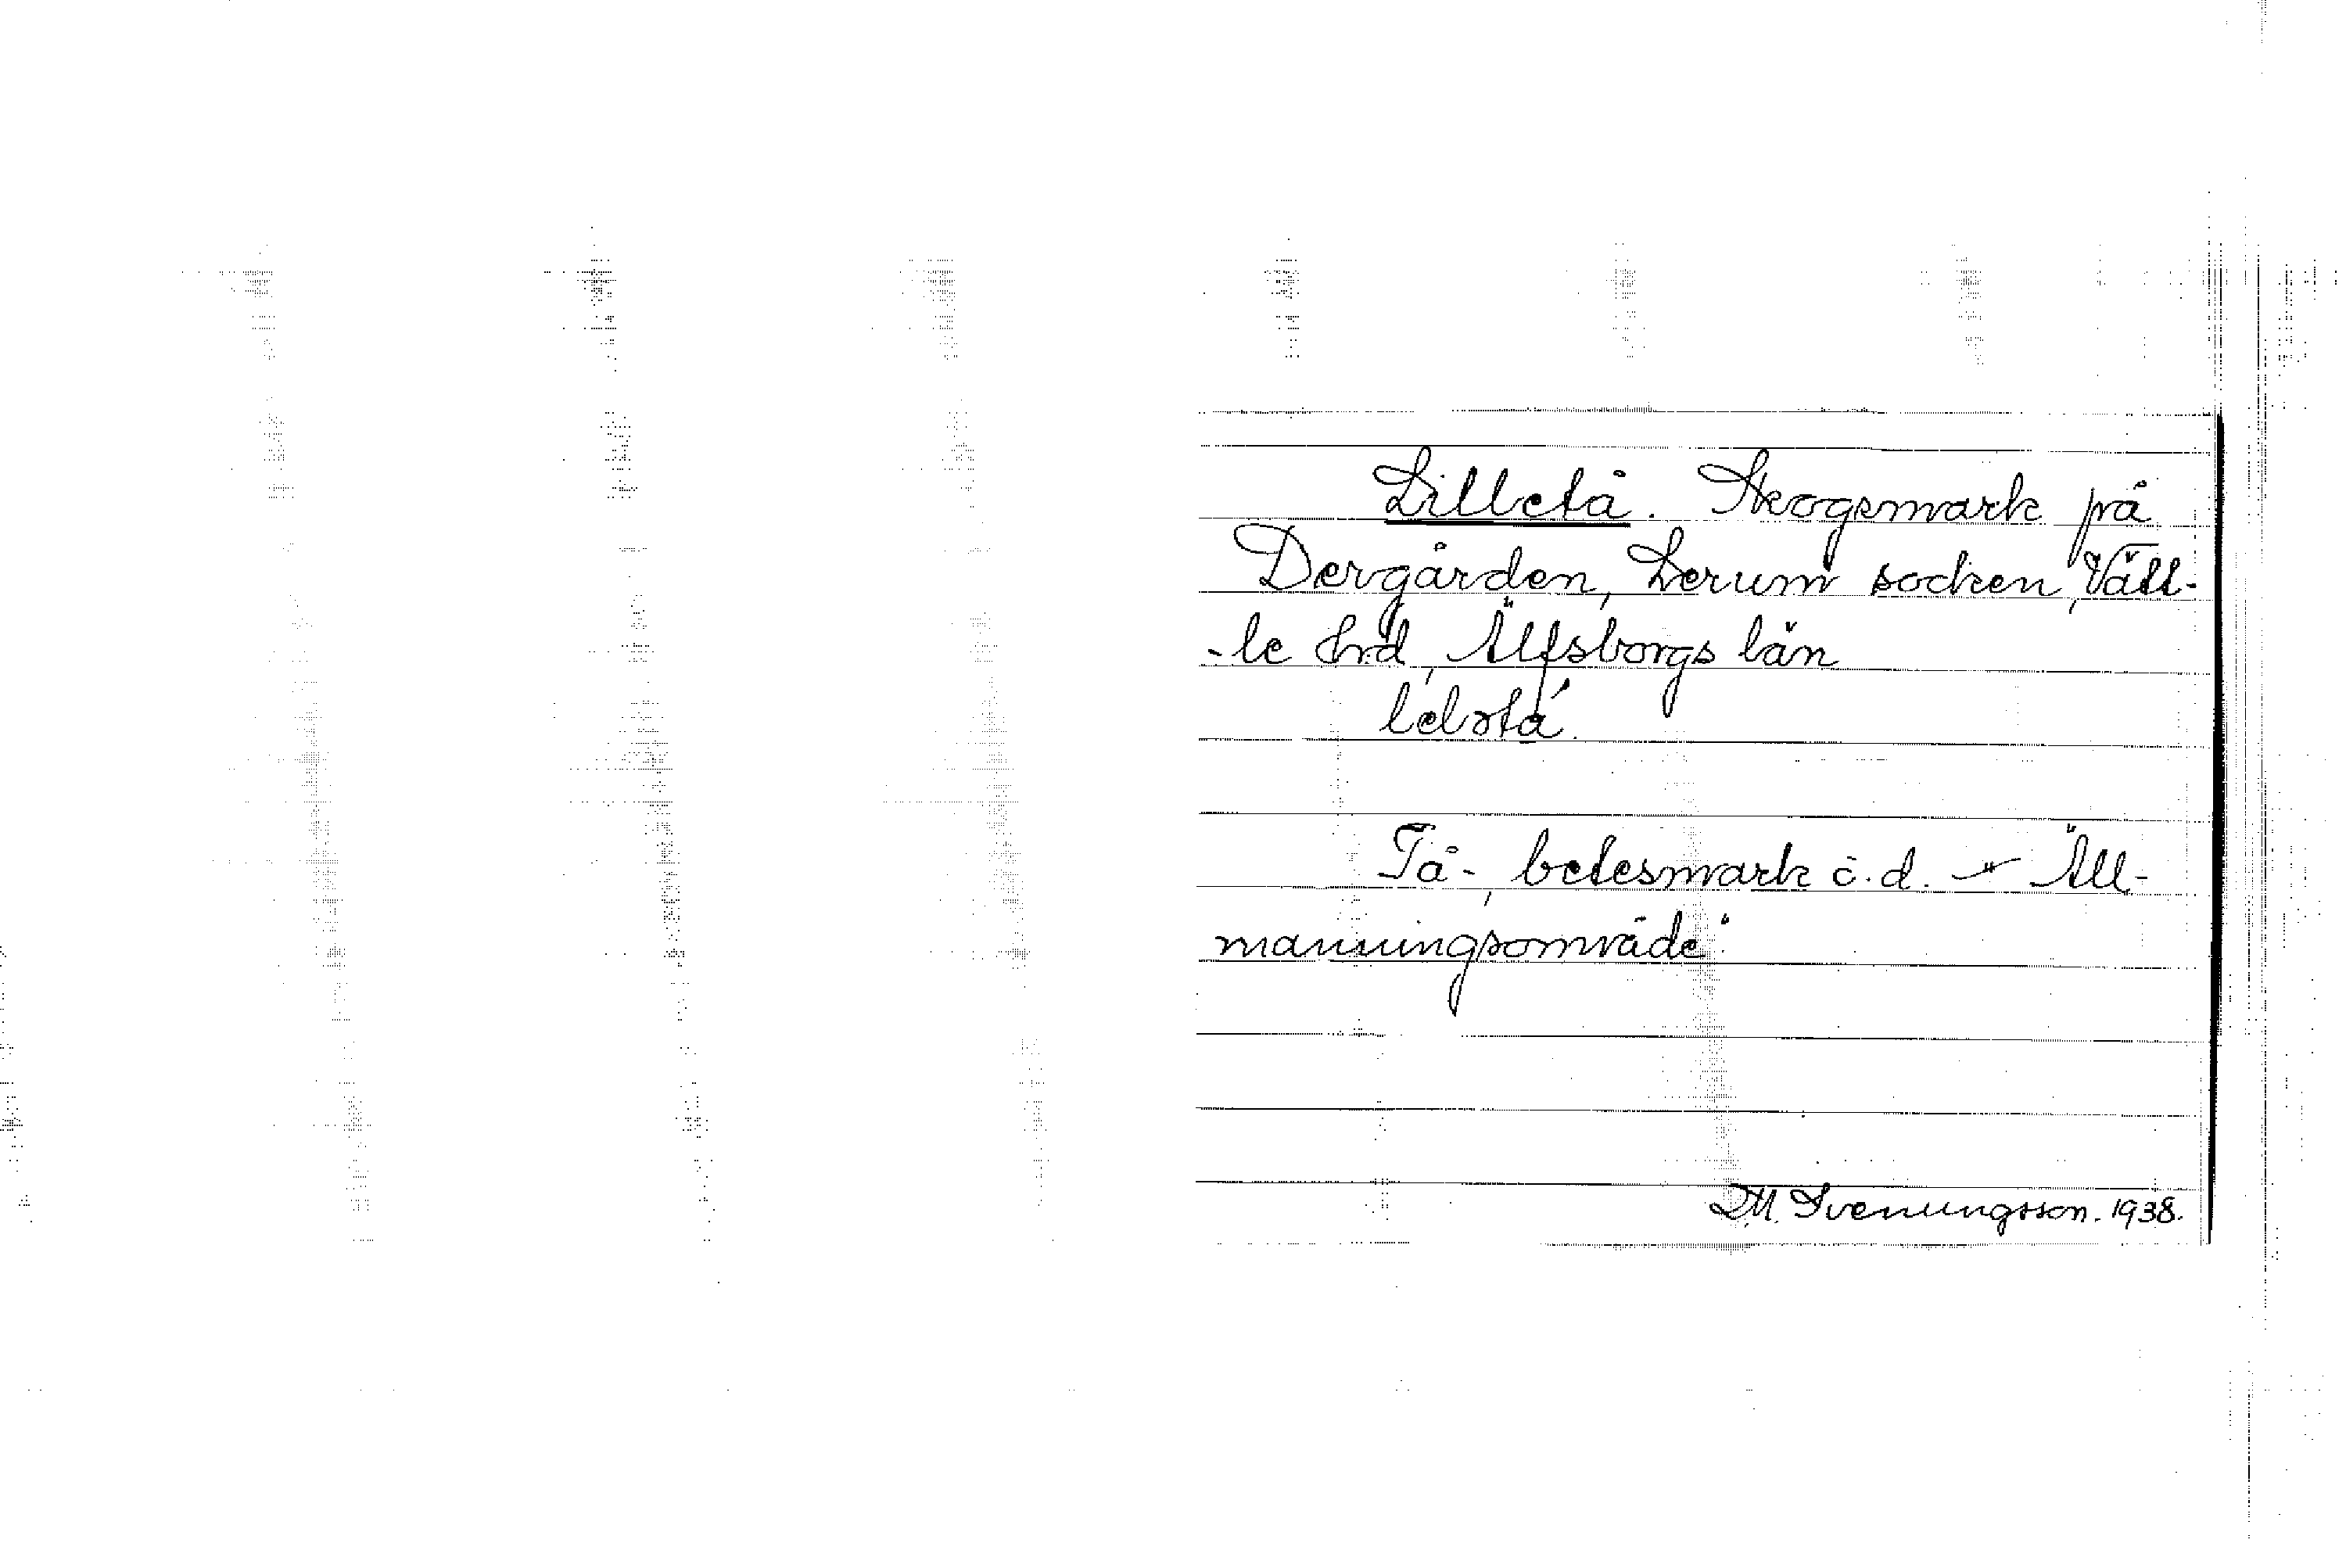 Lilletå. Skogsmark på
Dergården, Lerum socken, Vätt-
-le hrd, Älfsborgs län
lelstá.
Tå-, betesmark o.d. - "All-
manningsområde".
D.M. Svenungsson. 1938.